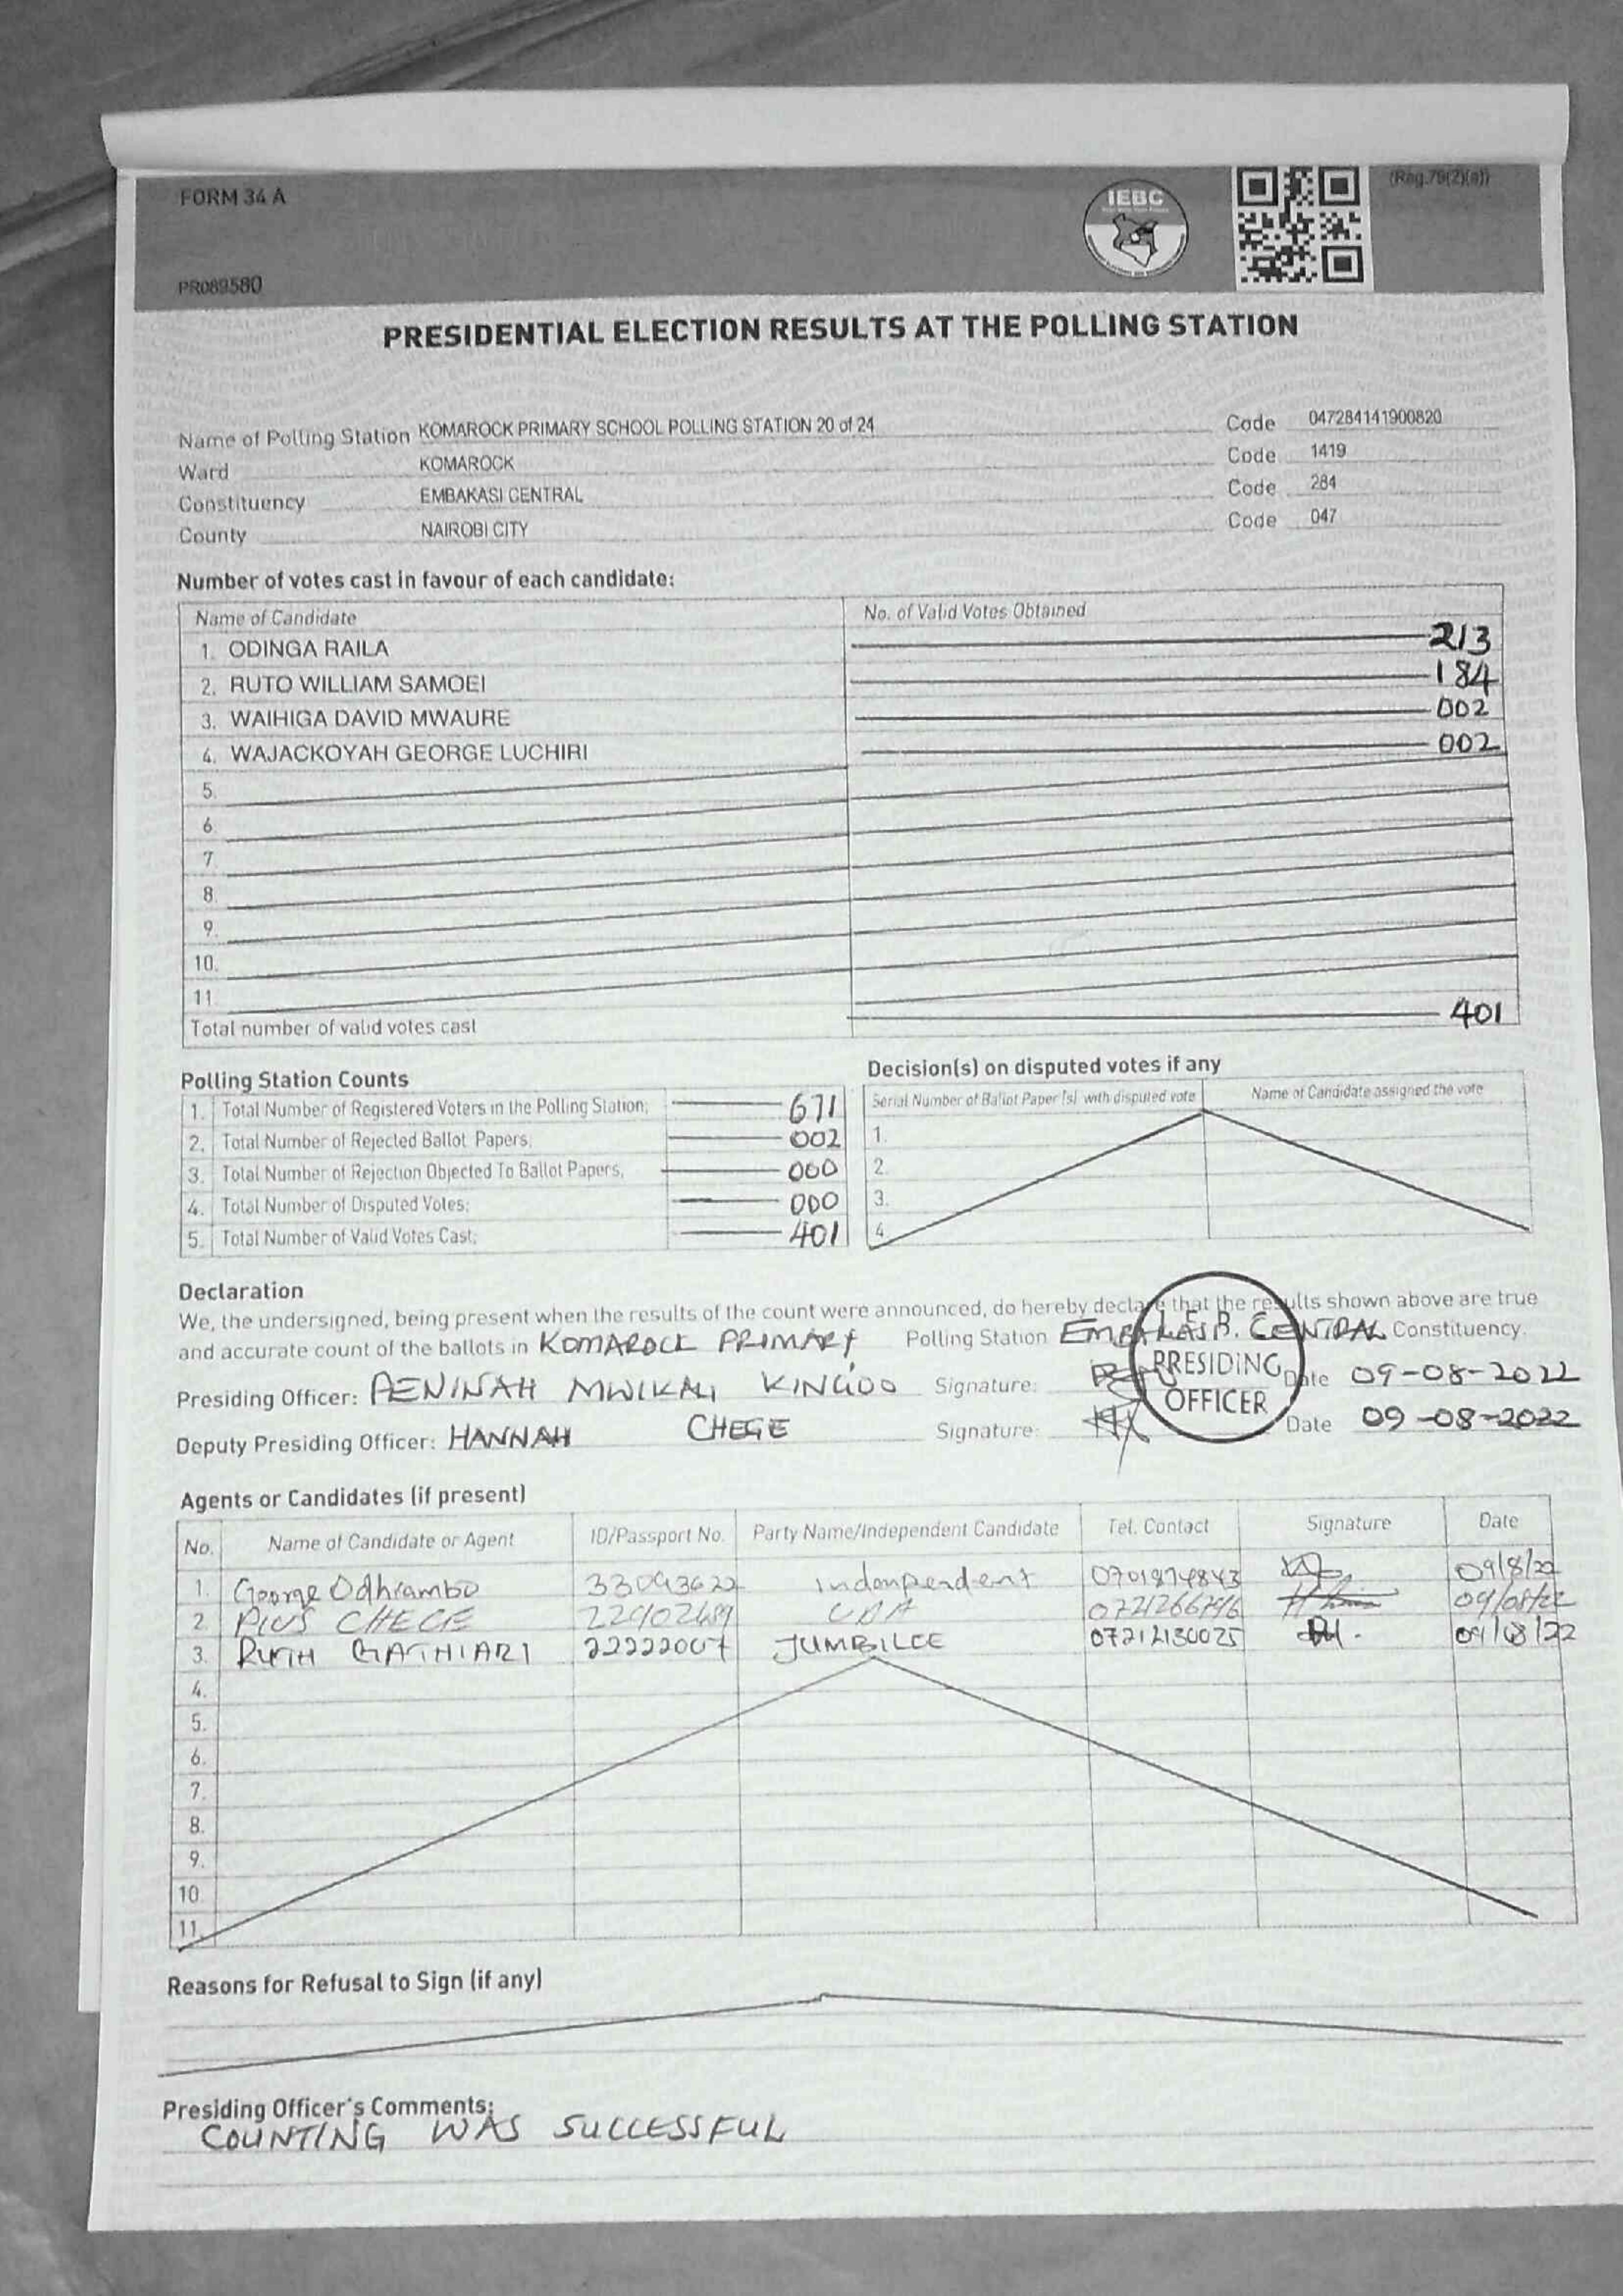 FORM 34 A
IEBC
(Reg.79(2)(a))
PR089580
PRESIDENTIAL ELECTION RESULTS AT THE POLLING STATION
Name of Polling Station KOMAROCK PRIMARY SCHOOL POLLING STATION 20 of 24 Code 047284141900820
Ward KOMAROCK Code 1419
Constituency EMBAKASI CENTRAL Code 284
County NAIROBI CITY Code 047
Number of votes cast in favour of each candidate:
Name of Candidate No. of Valid Votes Obtained
1. ODINGA RAILA 213
2. RUTO WILLIAM SAMOEI 184
3. WAIHIGA DAVID MWAURE 002
4. WAJACKOYAH GEORGE LUCHIRI 002
5.
6
7.
8.
9.
10.
11
Total number of valid votes cast 401
Polling Station Counts
1. Total Number of Registered Voters in the Polling Station; 671
2. Total Number of Rejected Ballot Papers; 002
3. Total Number of Rejection Objected To Ballot Papers; 000
4. Total Number of Disputed Votes; 000
5. Total Number of Valid Votes Cast; 401
Decision(s) on disputed votes if any
Serial Number of Ballot Paper (s) with disputed vote Name of Candidate assigned the vote
1.
2.
3.
4
Declaration
We, the undersigned, being present when the results of the count were announced, do hereby declare that the results shown above are true
and accurate count of the ballots in KOMAROCK PRIMARY Polling Station EMBAKASI CENTRAL Constituency.
Presiding Officer: PENINAH MWIKALI KINGOO Signature: Date 09-08-2022
PRESIDING OFFICER
Deputy Presiding Officer: HANNAH CHEGE Signature: Date 09-08-2022
Agents or Candidates (if present)
No. Name of Candidate or Agent ID/Passport No. Party Name/Independent Candidate Tel. Contact Signature Date
1. George Odhiambo indonpendent 09/8/22
2 PIUS CHEGE UDA 09/08/22
3. RUTH GATHIARI 22222007 JUMBILEE 09/08/22
4.
5.
6.
7.
8.
9.
10
11.
Reasons for Refusal to Sign (if any)
Presiding Officer's Comments:
COUNTING WAS SUCCESSFUL